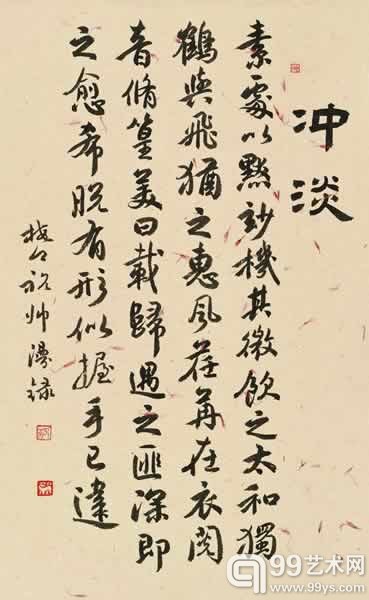 冲淡
素處以默妙機其微飲之太和獨
鶴與飛猶之惠風荏苒在衣閱
音脩篁美曰載歸遇之匪深即
之愈希脱有形似握手已違
祝帅漫録
99艺术网
www.99ys.com